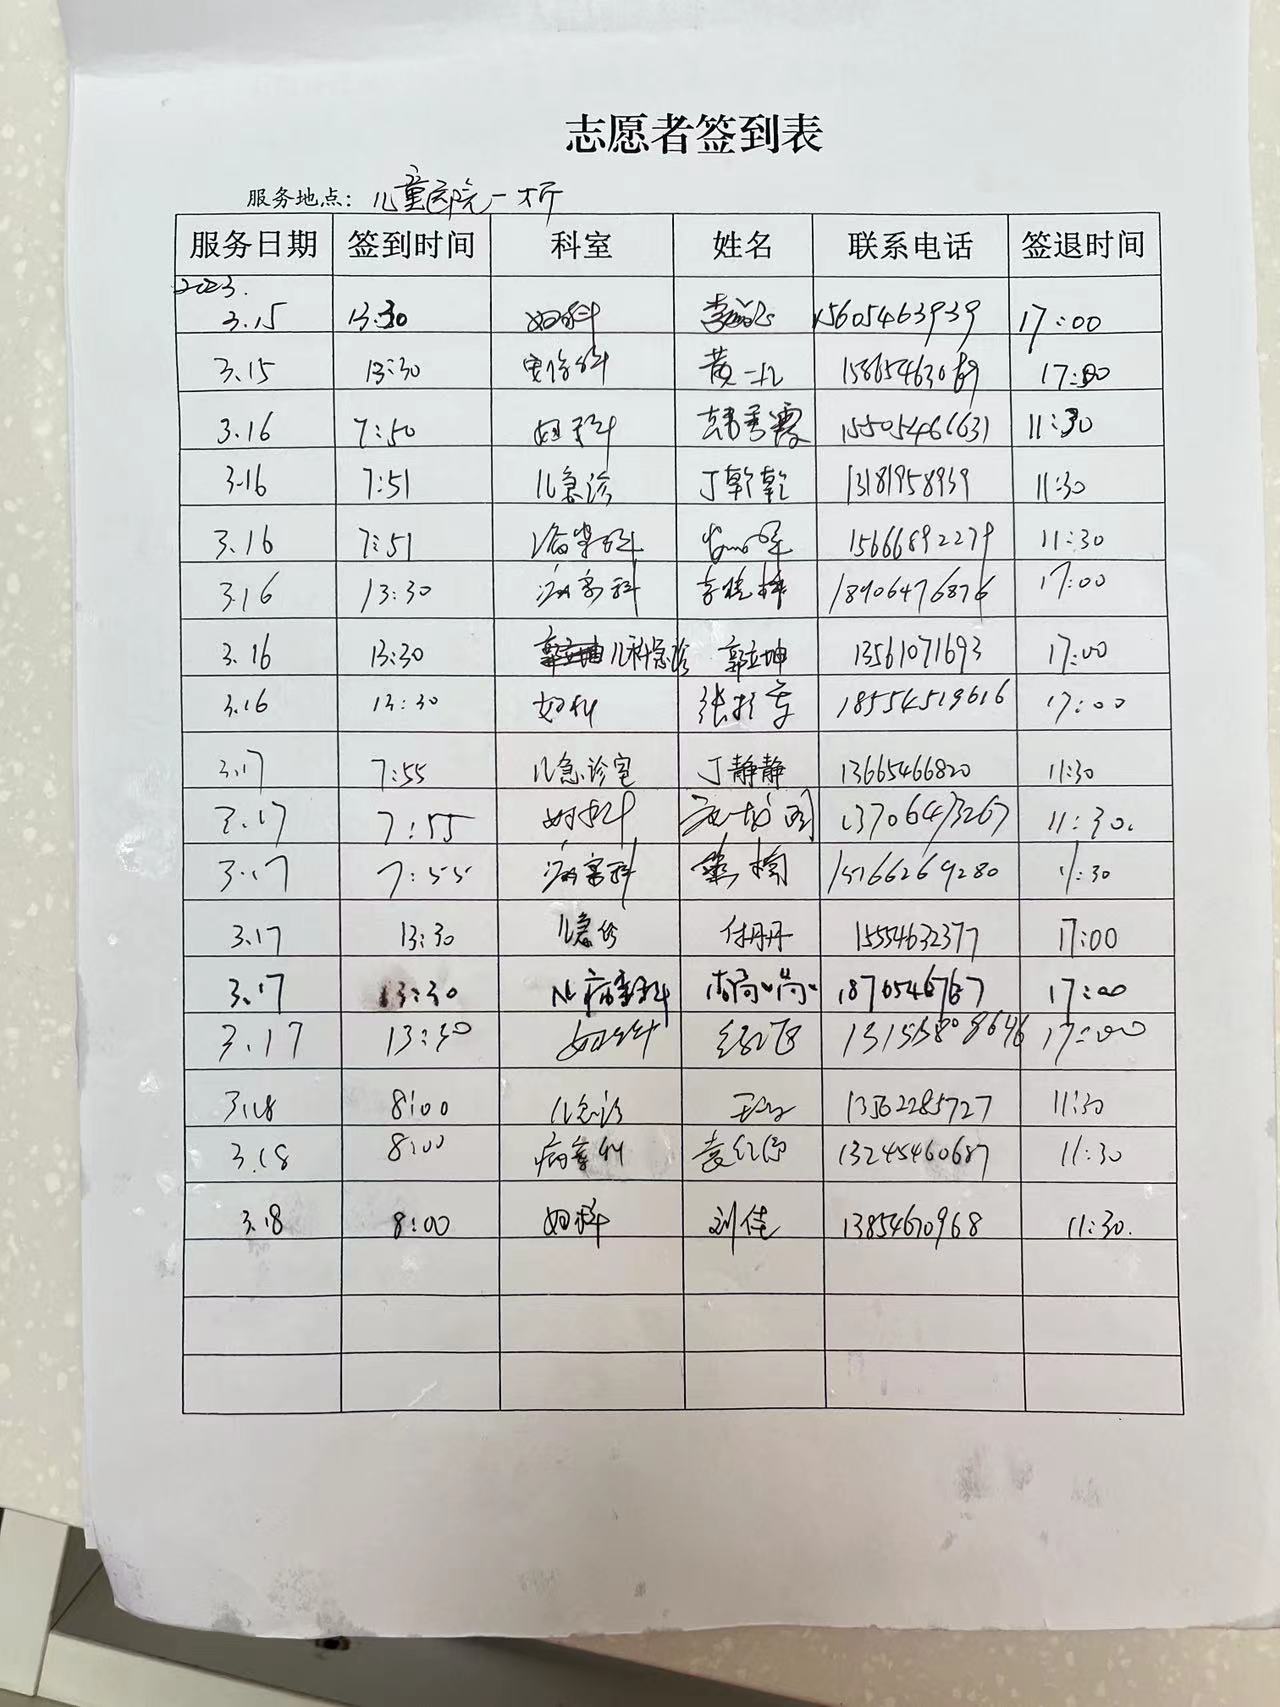 志愿者签到表
服务地点：儿童医院一楼
服务日期 签到时间 科室 姓名 联系电话 签退时间
2023.
3.15 13:30 妇科 15605463939 17:00
3.15 13:30 黄 17:00
3.16 7:50 妇科 韩秀霞 15505466631 11:30
3.16 7:51 儿急诊 丁乾乾 13181958939 11:30
3.16 7:51 病案科 15666892279 11:30
3.16 13:30 病案科 李晓梅 18906476876 17:00
3.16 13:30 儿科急诊 郭立坤 13561071693 17:00
3.16 13:30 妇科 18554519616 17:00
3.17 7:55 儿急诊室 丁静静 13665466820 11:30
3.17 7:55 妇科 13706473267 11:30.
3.17 7:55 病案科 15766269280 11:30
3.17 13:30 儿急诊 付丹丹 15554632377 17:00
3.17 13:30 儿病案科 尚尚 17:00
3.17 13:30 妇科 17:00
3.18 8:00 儿急诊 13562285727 11:30
3.18 8:00 病案科 13245460687 11:30
3.18 8:00 妇科 刘佳 13854670968 11:30.